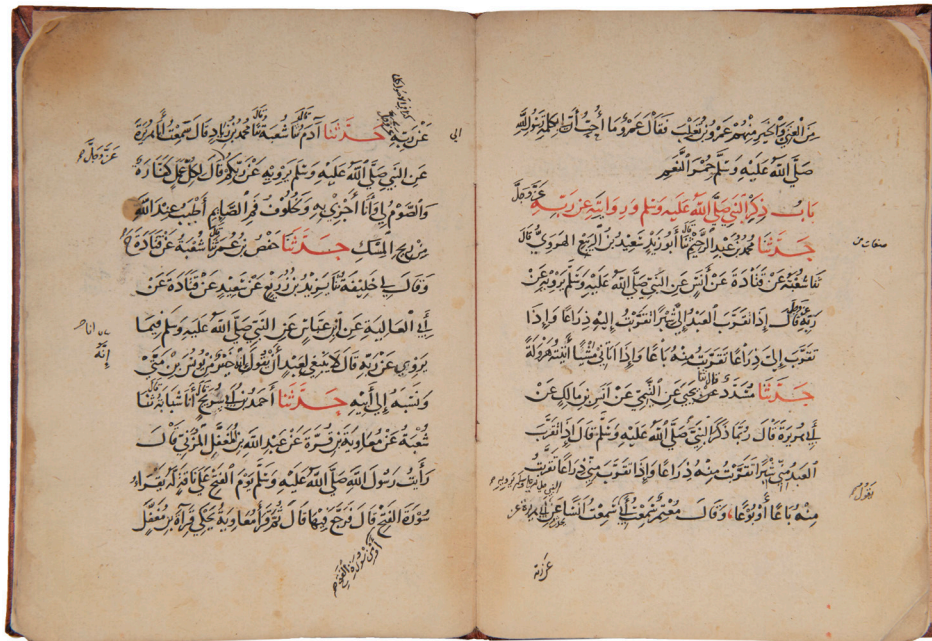 من الغنى والخير منهم عمرو بن تغلب فقال عمرو ما أحب أن لي بكلمة رسول الله
صلى الله عليه وسلم حمر النعم
باب ذكر النبي صلى الله عليه وسلم وروايته عن ربه عز وجل
حدثنا محمد بن عبد الرحيم ثنا أبو زيد سعيد بن الربيع الهروي قال
ثنا شعبة عن قتادة عن أنس عن النبي صلى الله عليه وسلم يرويه عن
ربه عز وجل قال إذا تقرب العبد إلي شبرا تقربت إليه ذراعا وإذا
تقرب إلي ذراعا تقربت منه باعا وإذا أتاني مشيا أتيته هرولة
حدثنا مسدد عن يحيى عن التيمي عن أنس بن مالك عن
أبي هريرة قال ربما ذكر النبي صلى الله عليه وسلم قال إذا تقرب
العبد مني شبرا تقربت منه ذراعا وإذا تقرب مني ذراعا تقربت
منه باعا أو بوعا وقال معتمر سمعت أبي سمعت أنسا عن أبي هريرة عن
يقول
عن ربه
عن ربه حدثنا آدم ثنا شعبة ثنا محمد بن زياد قال سمعت أبا هريرة
عن النبي صلى الله عليه وسلم يرويه عن ربكم قال لكل عمل كفارة
والصوم لي وأنا أجزي به ولخلوف فم الصائم أطيب عند الله
من ريح المسك حدثنا حفص بن عمر ثنا شعبة عن قتادة ح
وقال لي خليفة ثنا يزيد بن زريع عن سعيد عن قتادة عن
أبي العالية عن ابن عباس عن النبي صلى الله عليه وسلم فيما
يروي عن ربه قال لا ينبغي لعبد أن يقول أنا خير من يونس بن متى
ونسبه إلى أبيه حدثنا أحمد بن أبي سريج أنا شبابة ثنا
شعبة عن معاوية بن قرة عن عبد الله بن المغفل المزني قال
رأيت رسول الله صلى الله عليه وسلم يوم الفتح على ناقة له يقرأ
سورة الفتح قال فرجع فيها قال ثم قرأ معاوية يحكي قراءة بن مغفل
عز وجل
إنه
أو من سورة الفتح